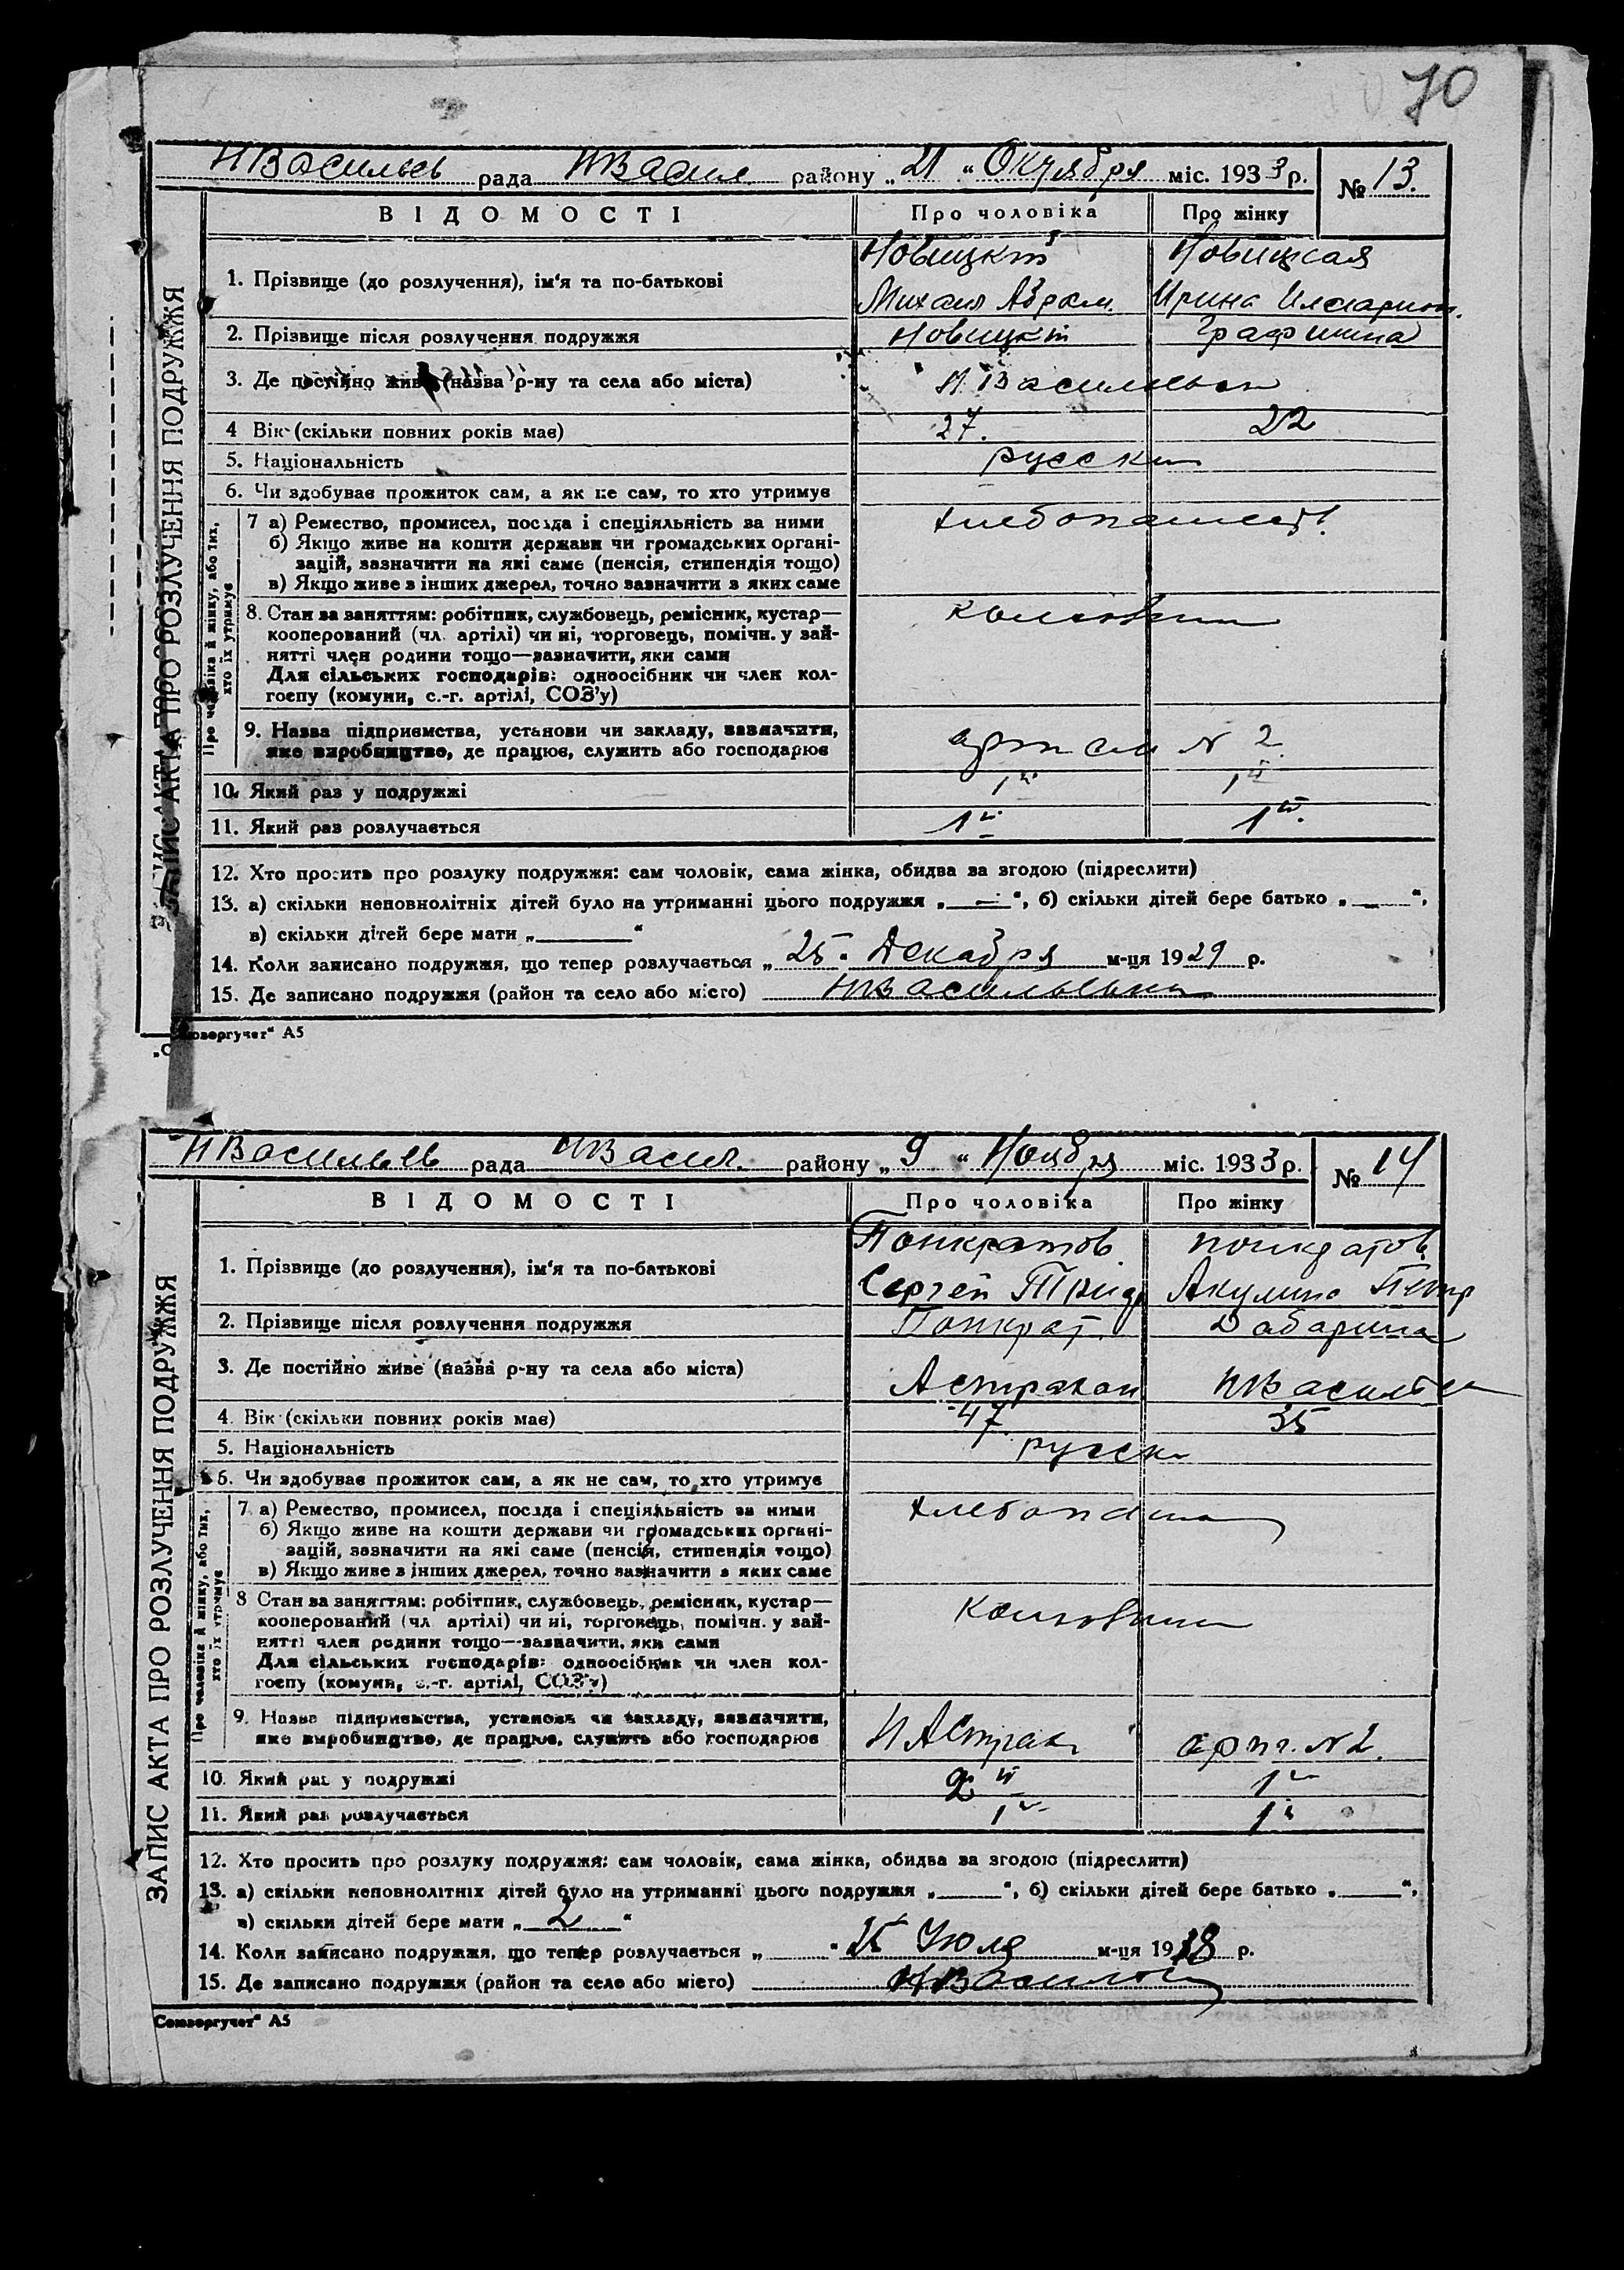 70
НВасильев рада НВасил. району „21“ Октября міс. 1933 р. № 13.
ВІДОМОСТІ Про чоловіка Про жінку
ЗАПИС АКТА ПРО РОЗЛУЧЕННЯ ПОДРУЖЖЯ
Новицкий Новицкая
1. Прізвище (до розлучення), ім'я та по-батькові
Михаил Абрам. Ирина Иларион.
2. Прізвище після розлучення подружжя Новицкий
3. Де постійно живе (назва р-ну та села або міста) Н Васильевка
4 Вік (скільки повних років має) 27. 22
5. Національність русские
6. Чи здобуває прожиток сам, а як не сам, то хто утримує
Про чоловіка й жінку, або тих,
хто їх утримує
7 а) Ремество, промисел, посада і спеціяльність за ними хлебопашест.
б) Якщо живе на кошти держави чи громадських органі-
зацій, зазначити на які саме (пенсія, стипендія тощо)
в) Якщо живе з інших джерел, точно зазначити з яких саме
8. Стан за заняттям: робітник, службовець, ремісник, кустар— колговник
кооперований (чл. артілі) чи ні, торговець, помічн. у зай-
нятті член родини тощо—зазначити, яки сами
Для сільських господарів: одноосібник чи член кол-
госпу (комуни, с.-г. артілі, СОЗ'у)
9. Назва підприємства, установи чи закладу, зазначити, артели N 2.
яке виробництво, де працює, служить або господарює
10. Який раз у подружжі 1й 1й
11. Який раз розлучається 1й 1й.
12. Хто просить про розлуку подружжя: сам чоловік, сама жінка, обидва за згодою (підреслити)
13. а) скільки неповнолітніх дітей було на утриманні цього подружжя „ — “, б) скільки дітей бере батько „ — “,
в) скільки дітей бере мати „ “
14. Коли записано подружжя, що тепер розлучається „25“ Декабря м-ця 1929 р.
15. Де записано подружжя (район та село або місто) НВасильевка
А5
НВасильев рада НВасил. району „9“ Ноября міс. 1933 р. № 14
ВІДОМОСТІ Про чоловіка Про жінку
ЗАПИС АКТА ПРО РОЗЛУЧЕННЯ ПОДРУЖЖЯ
Понкратов понкратов.
1. Прізвище (до розлучення), ім'я та по-батькові
Сергей Акулина Петр
2. Прізвище після розлучення подружжя Понкрат. Дабарина
3. Де постійно живе (назва р-ну та села або міста) Астрахан НВасильев
4. Вік (скільки повних років має) 47 35
5. Національність русски
6. Чи здобуває прожиток сам, а як не сам, то хто утримує
Про чоловіка й жінку, або тих,
хто їх утримує
7 а) Ремество, промисел, посада і спеціяльність за ними хлебопаш
б) Якщо живе на кошти держави чи громадських органі-
зацій, зазначити на які саме (пенсія, стипендія тощо)
в) Якщо живе з інших джерел, точно зазначити з яких саме
8 Стан за заняттям: робітник, службовець, ремісник, кустар— колговник
кооперований (чл. артілі) чи ні, торговець, помічн. у зай-
нятті член родини тощо—зазначити, яки сами
Для сільських господарів: одноосібник чи член кол-
госпу (комуни, с.-г. артілі, СОЗ'у)
9. Назва підприємства, установи чи закладу, зазначити, Н Астрах. арт. N 2.
яке виробництво, де працює, служить або господарює
10. Який раз у подружжі 2й 1й
11. Який раз розлучається 1й 1й
12. Хто просить про розлуку подружжя: сам чоловік, сама жінка, обидва за згодою (підреслити)
13. а) скільки неповнолітніх дітей було на утриманні цього подружжя „ “, б) скільки дітей бере батько „ “,
в) скільки дітей бере мати „2“
14. Коли записано подружжя, що тепер розлучається „ “ 25 Июля м-ця 1918 р.
15. Де записано подружжя (район та село або місто) НВасильев
А5